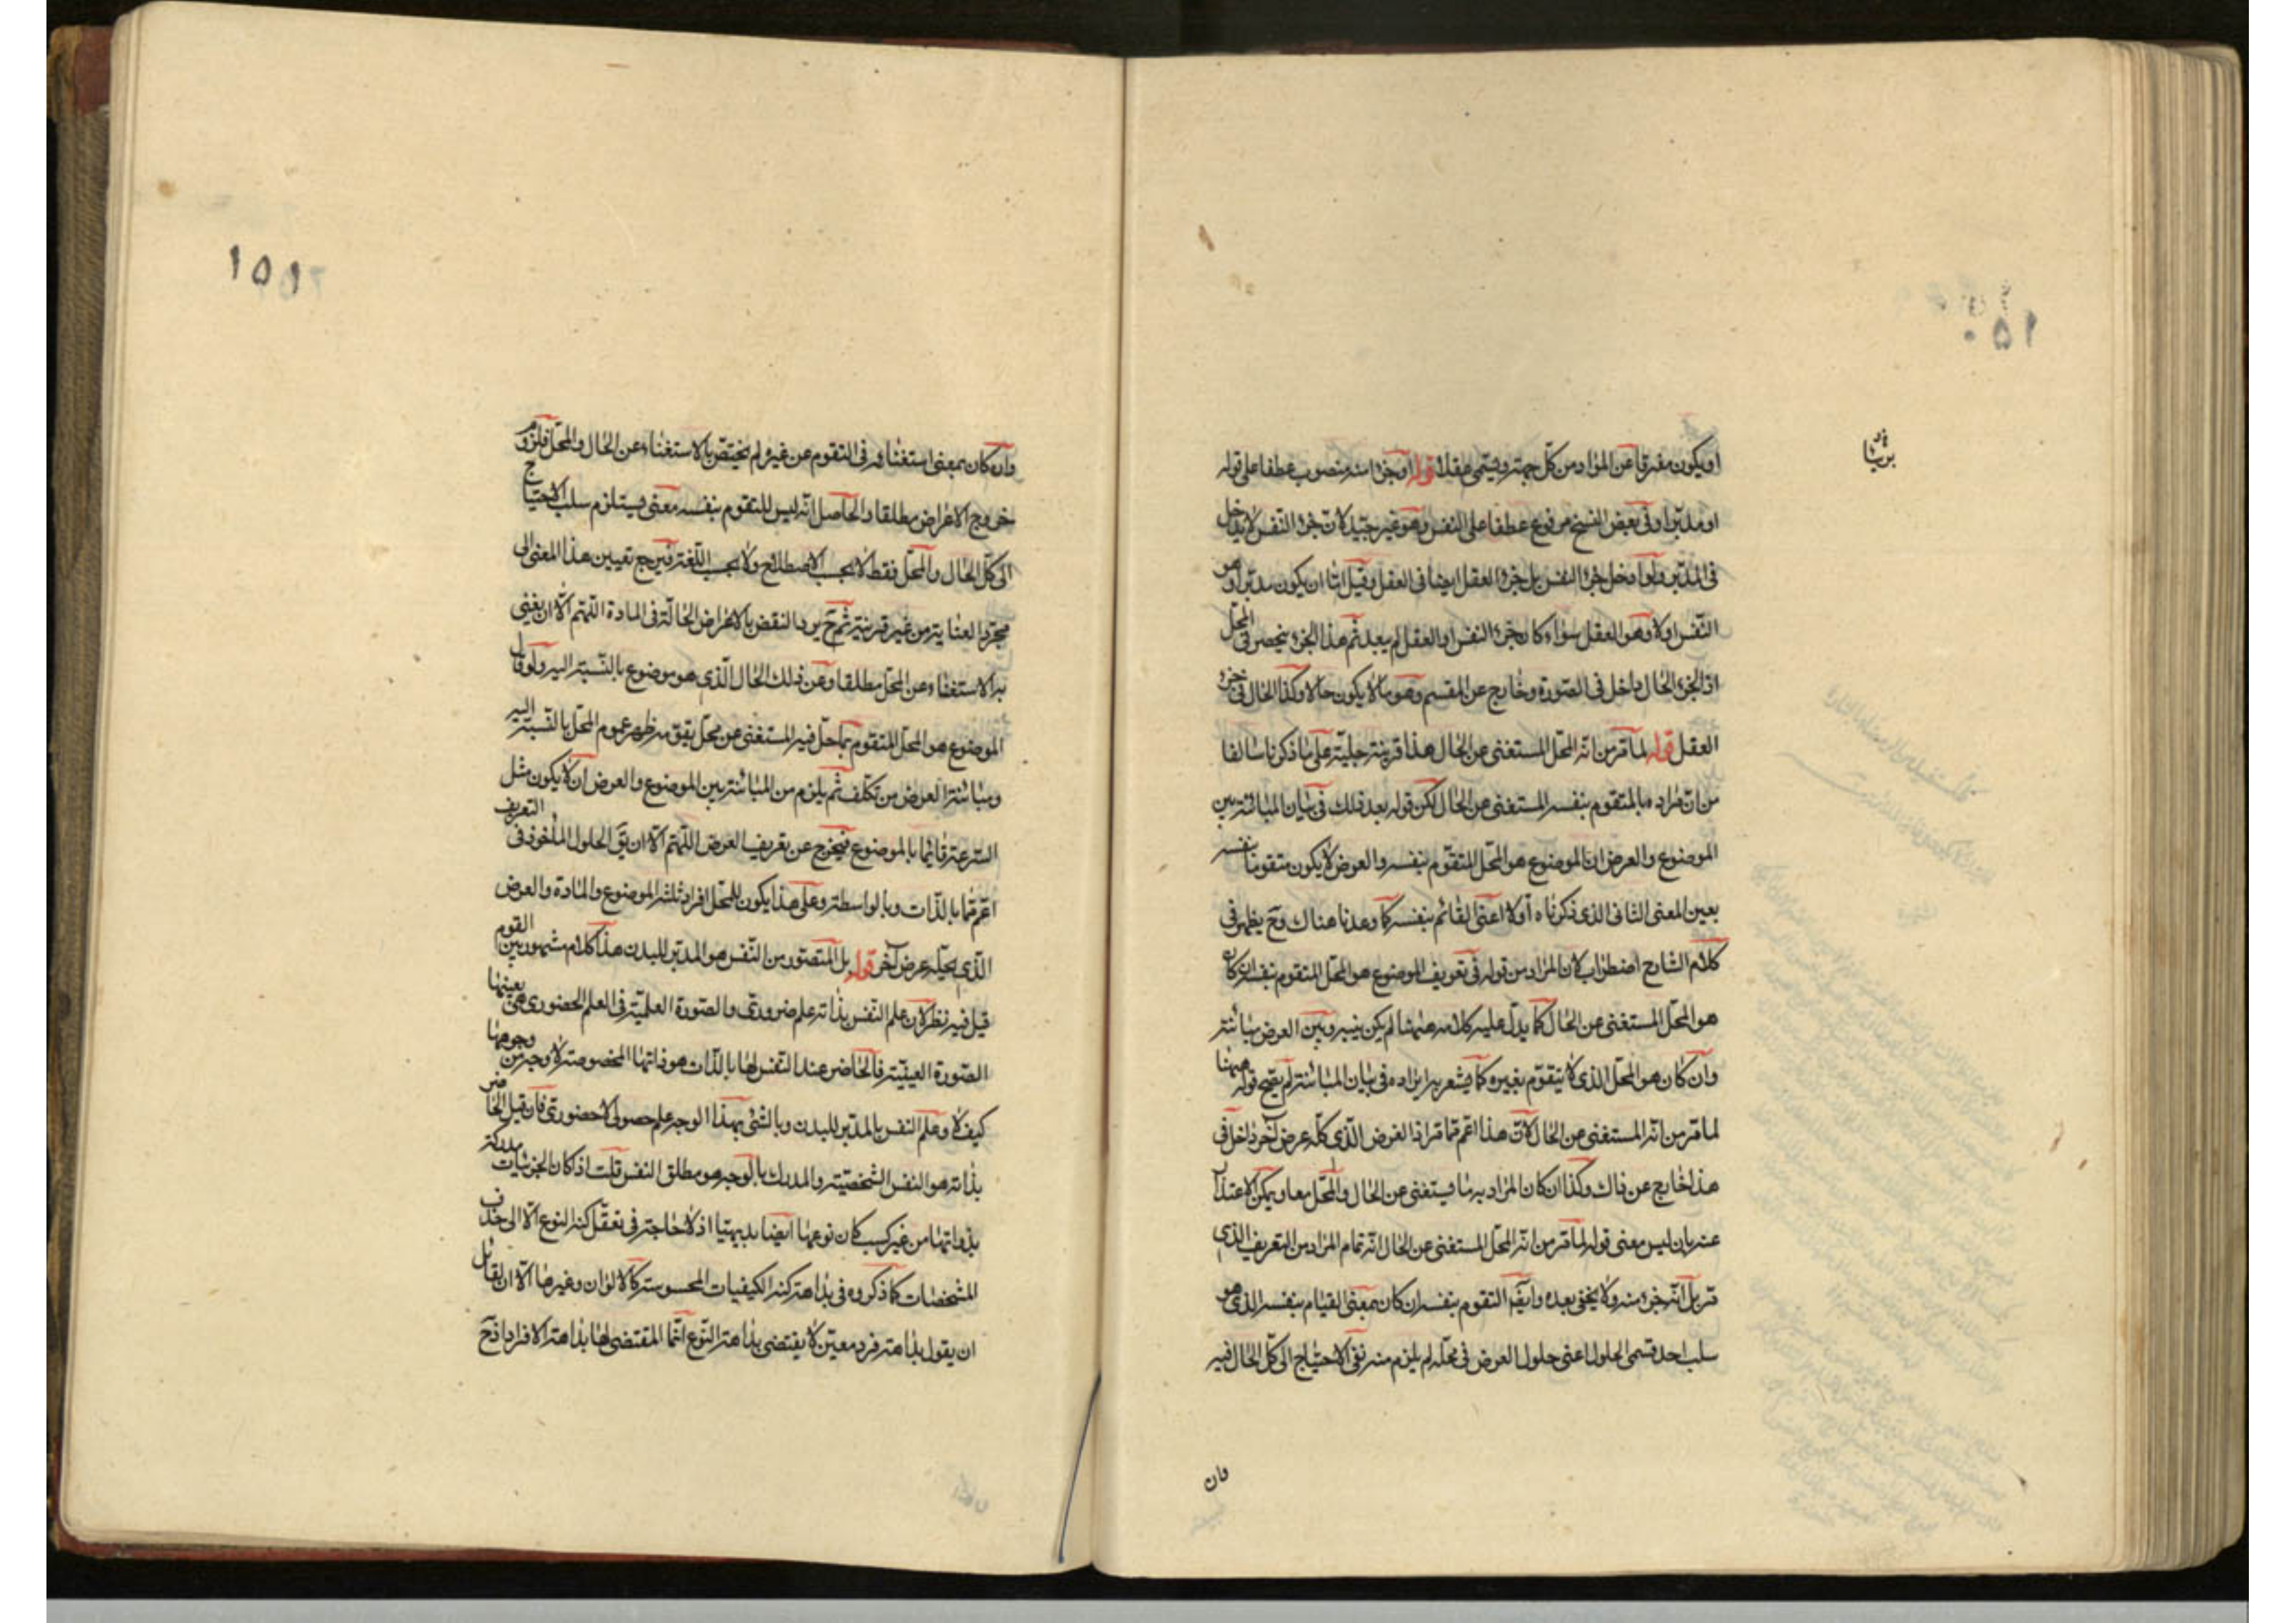 ١٥٠
او يكون مفرقا عن المواد من كل جهة ويسمى عقلا قوله او جزء منه منصوب عطفا على قوله
او مدبرا وفى بعض النسخ مرفوع عطفا على النفس وهو غير جيد لان جزء النفس لا يدخل
فى المدبر ولو دخل جزء النفس بل جزء العقل ايضا فى العقل وقيل اما ان يكون مدبرا وهو
النفس اولا وهو العقل سواء كان جزء النفس او العقل لم يبعد ثم هذا الجزء ينحصر فى المحل
اذ الجزء الحال داخل فى الصورة وخارج عن المقسم وهو ما لا يكون حالا وكذا الحال فى جزء
العقل قوله لما مر من انه المحل المستغنى عن الحال هذا قرينة جلية على ما ذكرنا سالفا
من ان مراده بالمتقوم بنفسه المستغنى عن الحال لكن قوله بعد ذلك فى بيان المباينة بين
الموضوع والعرض ان الموضوع هو المحل المتقوم بنفسه والعرض لا يكون متقوما بنفسه
بعين المعنى الثانى الذى ذكرناه اولا اعنى القائم بنفسه كما وعدنا هناك وح يظهر فى
كلام الشارح اضطراب لان المراد من قوله فى تعريف الموضوع هو المحل المتقوم بنفسه ان كان
هو المحل المستغنى عن الحال كما يدل عليه كلامه ههنا لم يكن بينه وبين العرض مباينة
وان كان هو المحل الذى لا يتقوم بغيره كما يشعر به ايراده فى بيان المباينة لم يصح قوله ههنا
لما مر من انه المستغنى عن الحال لان هذا اعم مما مر اذ العرض الذى حله عرض آخر داخل فى
هذا خارج عن ذاك وكذا ان كان المراد به ما يستغنى عن الحال والمحل معا ويمكن الاعتذار
عنه بان ليس معنى قوله لما مر من انه المحل المستغنى عن الحال انه تمام المراد من التعريف الذى
مر بل انه جزء منه ولا يخفى بعده وايضا التقوم بنفسه ان كان بمعنى القيام بنفسه الذى هو
سلب احد قسمى الحلول اعنى حلول العرض فى محله لم يلزم منه نفى الاحتياج الى كل الحال فيه
وان
١٥١
وان كان بمعنى استغنائه فى التقوم عن غيره لم يختص بالاستغناء عن الحال والمحل فلزوم
خروج الاعراض مطلقا والحاصل انه ليس للمتقوم بنفسه معنى يستلزم سلب الاحتياج
الى كل الحال والمحل فقط لا بحسب الاصطلاح ولا بحسب اللغة فيرجع تعيين هذا المعنى الى
مجرد العناية من غير قرينة ثم ح يرد النقض بالاعراض الحالة فى المادة اللهم الا ان يعنى
به الاستغناء عن المحل مطلقا وعن ذلك الحال الذى هو موضوع بالنسبة اليه ولو قال
الموضوع هو المحل المتقوم بما حل فيه المستغنى عن محل يقومه ظهر عموم المحل بالنسبة اليه
ومباينة العرض من تكلف ثم يلزم من المباينة بين الموضوع والعرض ان لا يكون مثل
السرعة قائما بالموضوع فيخرج عن تعريف العرض اللهم الا ان يق الحلول المأخوذ فى التعريف
اعم مما بالذات وبالواسطة وعلى هذا يكون للمحل افراد ثلثة الموضوع والمادة والعرض
الذى يحله عرض آخر قوله بل المتصور من النفس هو المدبر للبدن هذا كلام مشهور بين القوم
قيل فيه نظر لان علم النفس بذاته علم ضرورى والصورة العلمية فى العلم الحضورى هى بعينها
الصورة العينية فالحاضر عند النفس لها بالذات هو ذاتها المخصوصة لا وجه من وجوهها
كيف لا وعلم النفس بالمدبر للبدن وبالشئ بهذا الوجه علم حصولى لا حضورى فان قيل الحاضر
بذاته هو النفس الشخصية والمدرك بالوجه هو مطلق النفس قلت اذ كان الجزئيات مدركة
بذواتها من غير كسب كان نوعها ايضا بديهيا اذ لا حاجة فى تعقل كنه النوع الا الى حذف
المشخصات كما ذكروه فى بداهة كنه الكيفيات المحسوسة كالالوان وغيرها الا ان لقائل
ان يقول بداهة فرد معين لا يقتضى بداهة النوع انما المقتضى لها بداهة الافراد اذ ح